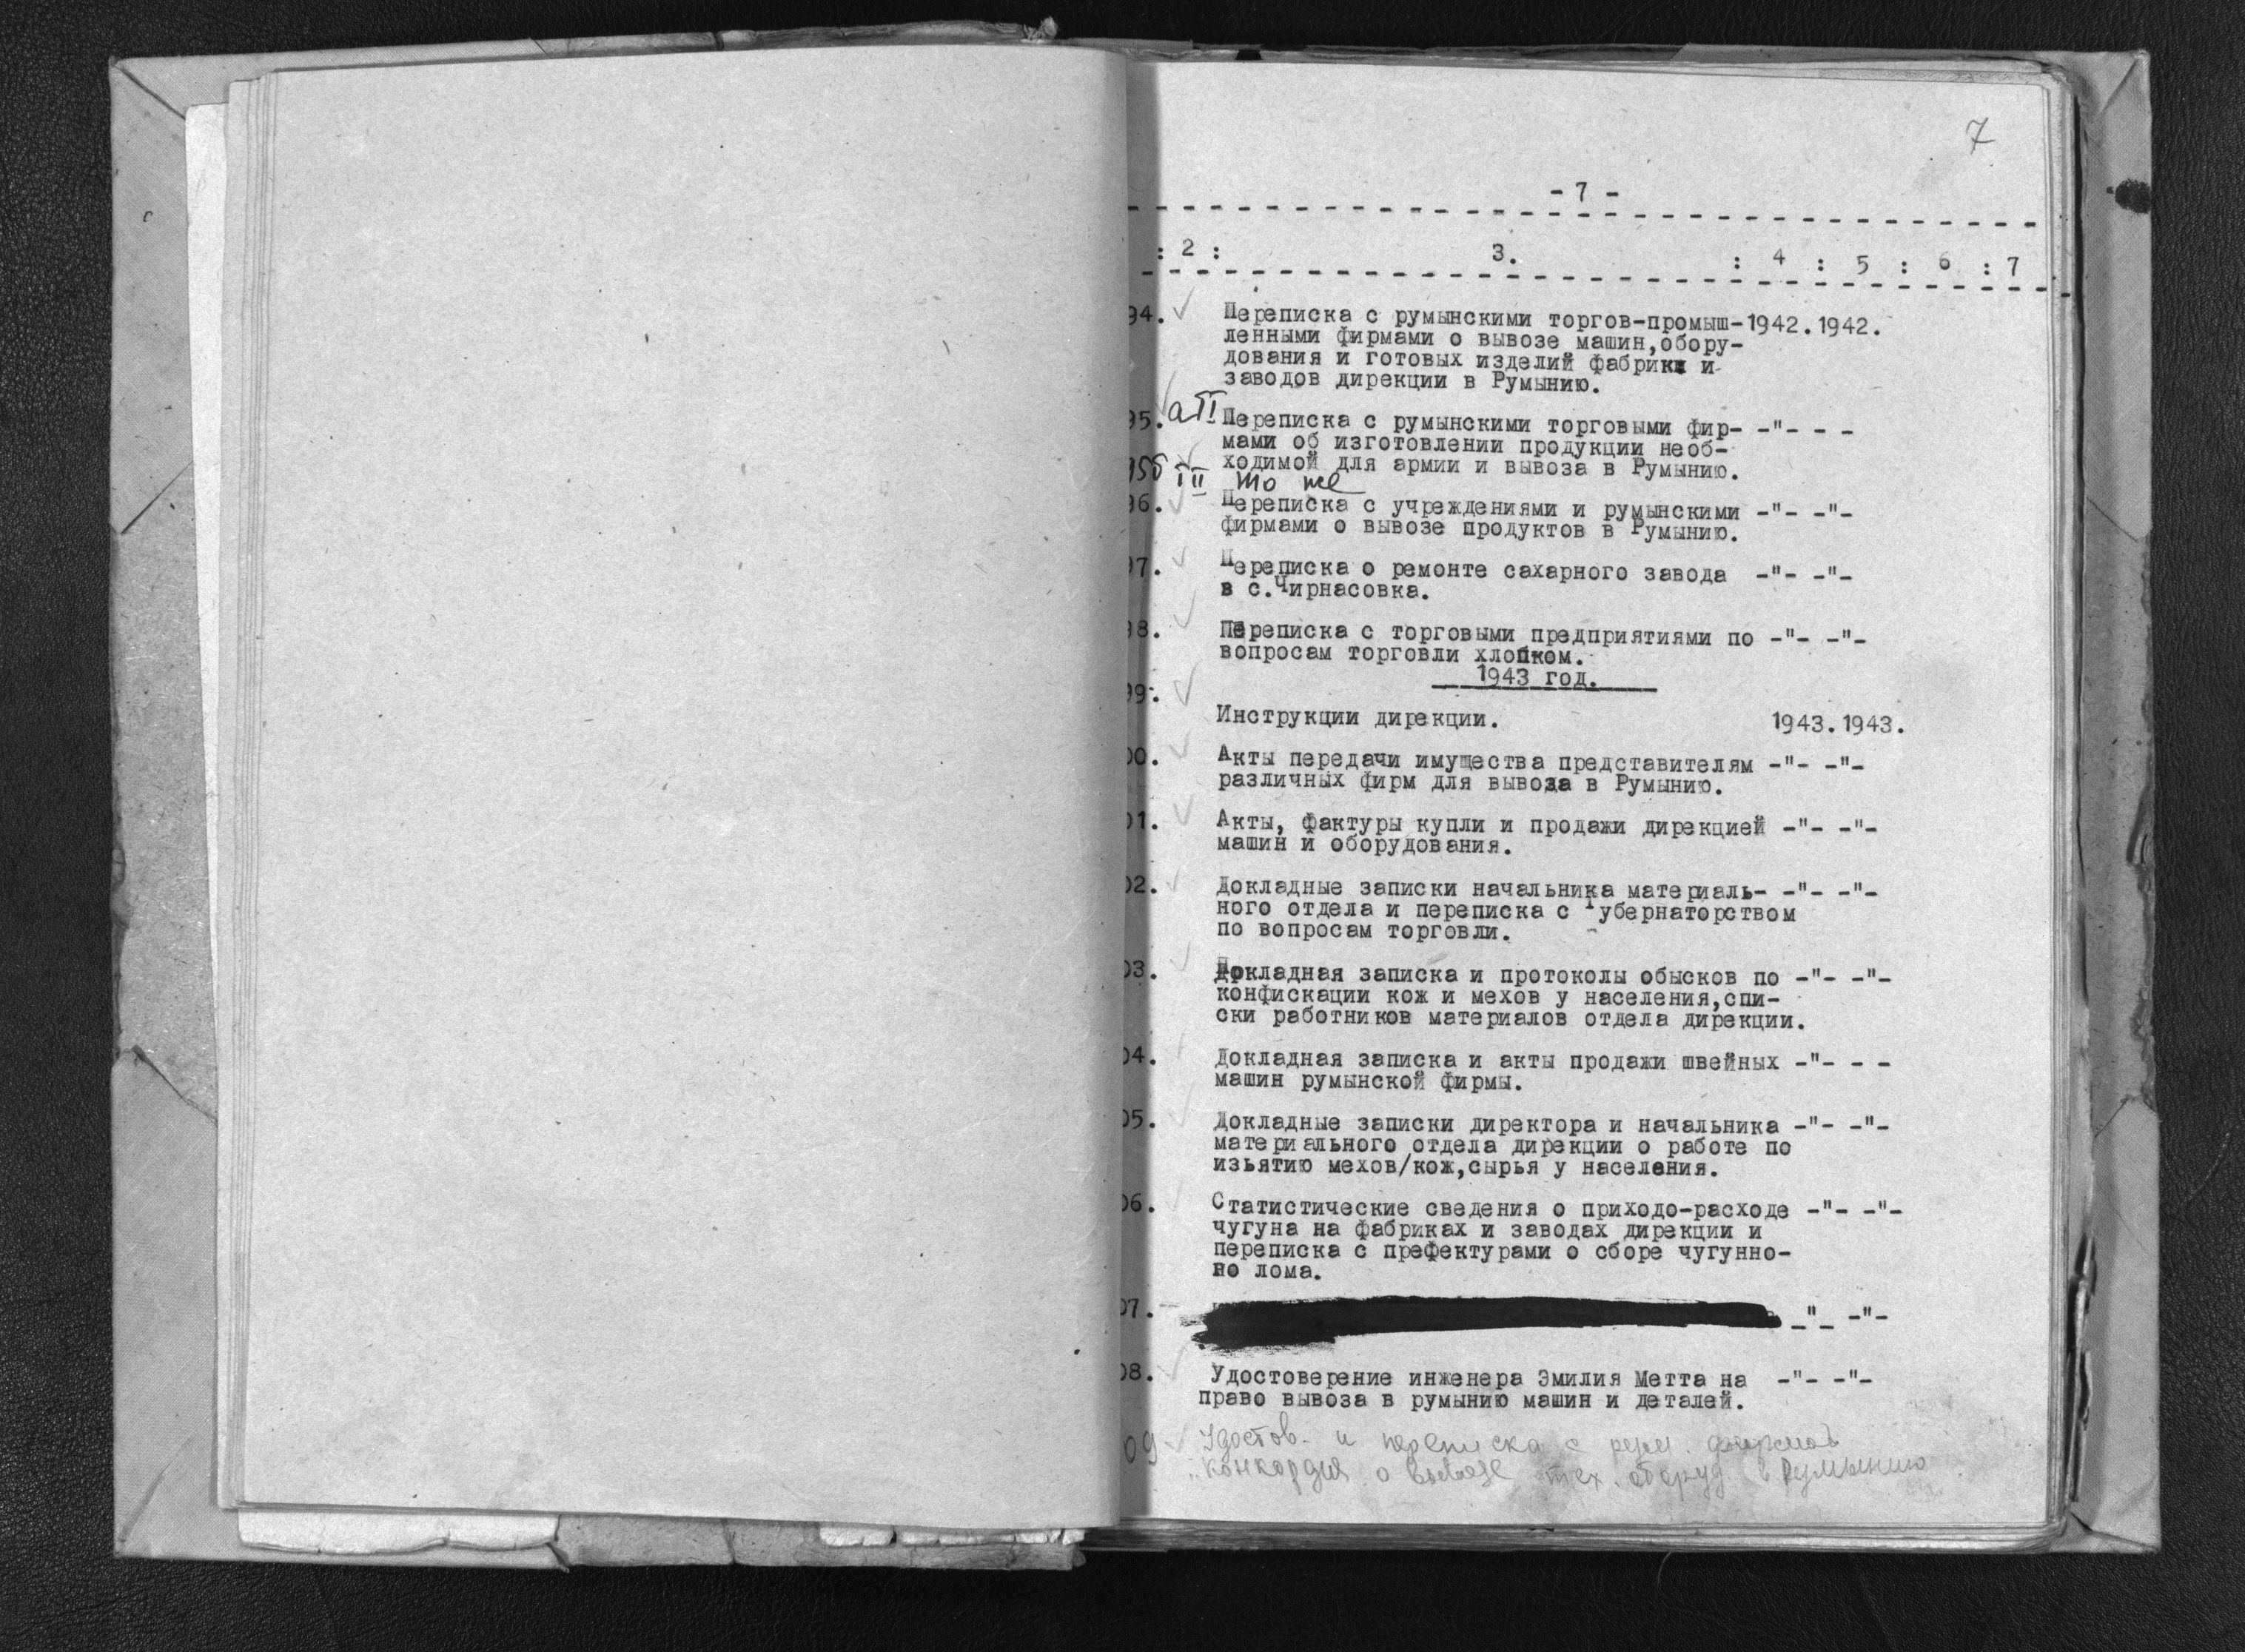 7
- 7 -
: 2 : 3. : 4 : 5 : 6 : 7
94. Переписка с румынскими торгов-промыш- 1942. 1942.
ленными фирмами о вывозе машин,обору-
дования и готовых изделий фабрики и
заводов дирекции в Румынию.
95. а II Переписка с румынскими торговыми фир- -"- - -
мами об изготовлении продукции необ-
ходимой для армии и вывоза в Румынию.
95б III то же
96. Переписка с учреждениями и румынскими -"- -"-
фирмами о вывозе продуктов в Румынию.
97. Переписка о ремонте сахарного завода -"- -"-
в с.Чирнасовка.
98. Переписка с торговыми предприятиями по -"- -"-
вопросам торговли хлопком.
1943 год.
99.
Инструкции дирекции. 1943. 1943.
00. Акты передачи имущества представителям -"- -"-
различных фирм для вывоза в Румынию.
01. Акты, фактуры купли и продажи дирекцией -"- -"-
машин и оборудования.
02. Докладные записки начальника материаль- -"- -"-
ного отдела и переписка с Губернаторством
по вопросам торговли.
03. Докладная записка и протоколы обысков по -"- -"-
конфискации кож и мехов у населения,спи-
ски работников материалов отдела дирекции.
04. Докладная записка и акты продажи швейных -"- - -
машин румынской фирмы.
05. Докладные записки директора и начальника -"- -"-
материального отдела дирекции о работе по
изьятию мехов/кож,сырья у населения.
06. Статистические сведения о приходо-расходе -"- -"-
чугуна на фабриках и заводах дирекции и
переписка с префектурами о сборе чугунно-
го лома.
07. -"- -"-
08. Удостоверение инженера Эмилия Метта на -"- -"-
право вывоза в румынию машин и деталей.
09 Удостов. и переписка с рум. фирмой
"Конкордия о вывозе тех. оборуд в Румынию